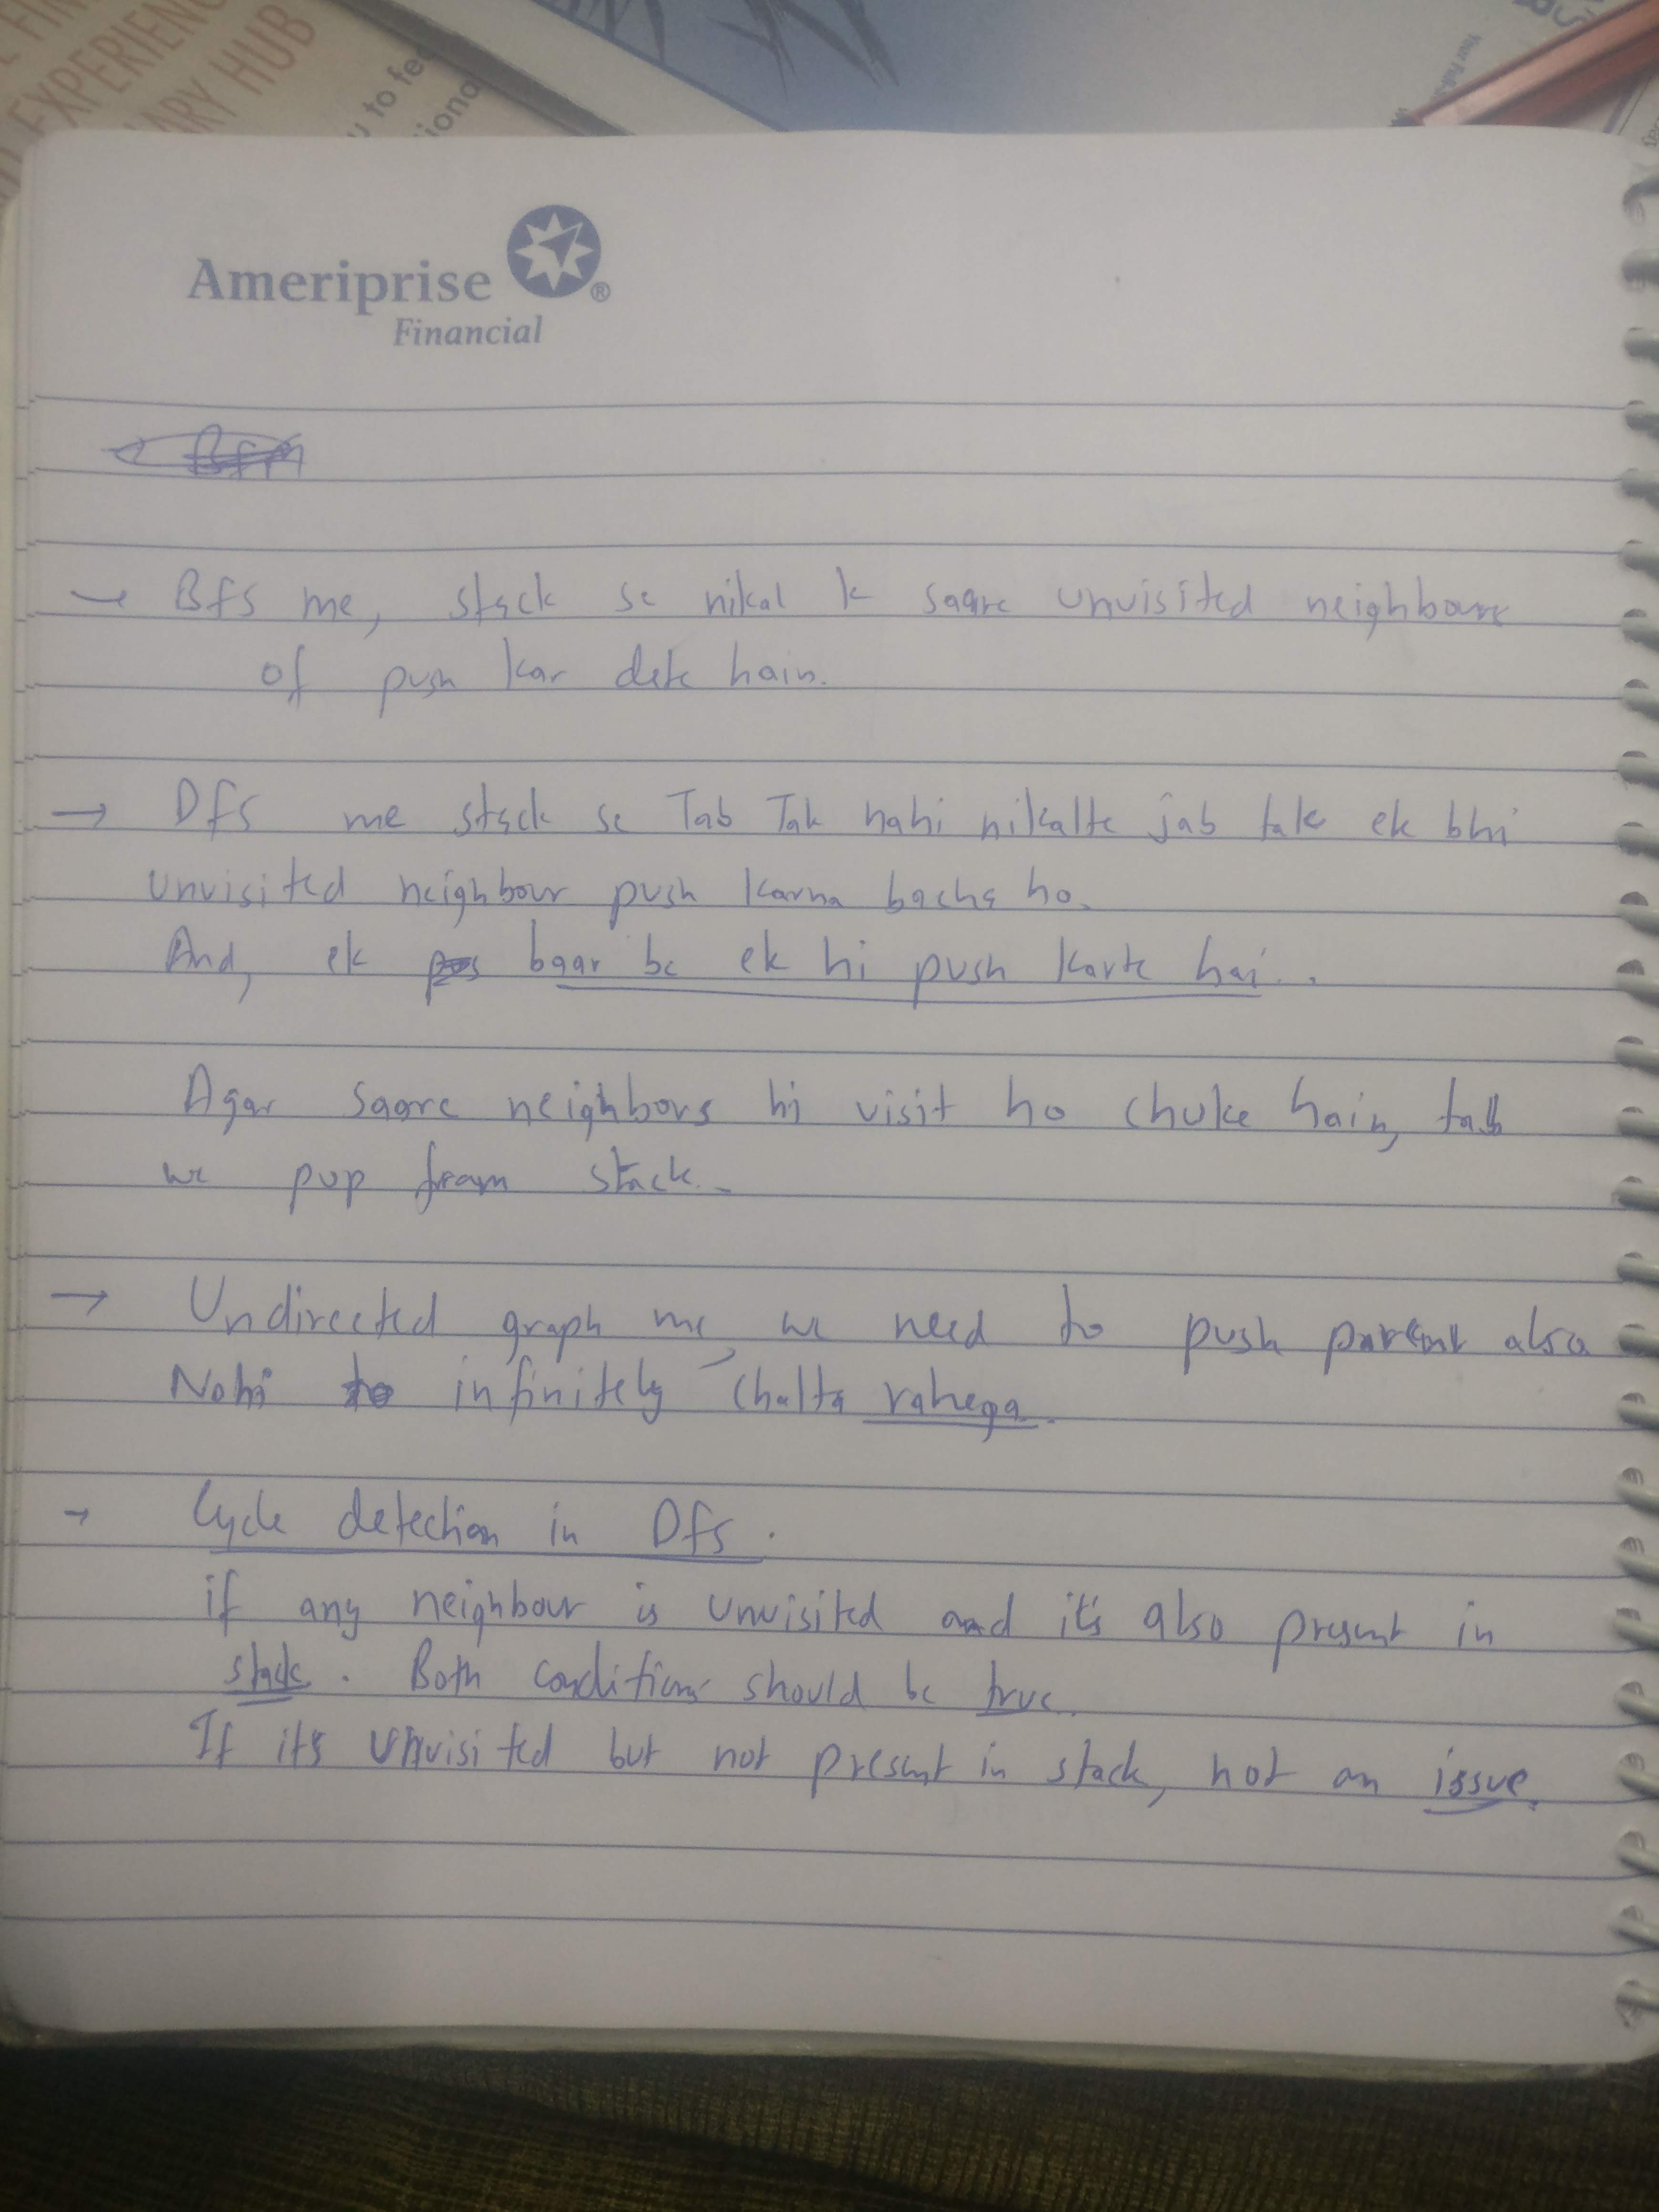 EXPERIENC
ARY HUB
u to fee
iona
Your
Ameriprise
Financial
→ Bfs me, stack se nikal k saare unvisited neighbours
of push kar dete hain.
→ Dfs me stack se Tab Tak nahi nikalte jab tak ek bhi
unvisited neighbour push karna bacha ho.
And, ek baar be ek hi push karte hai..
Agar saare neighbors hi visit ho chuke hain, tab
we pop from stack.
→ Undirected graph me, we need to push parent also
Nahi to infinitely chalta rahega.
→ Cycle detection in Dfs.
if any neighbour is unvisited and it's also present in
stack. Both conditions should be true.
If it's unvisited but not present in stack, not an issue.